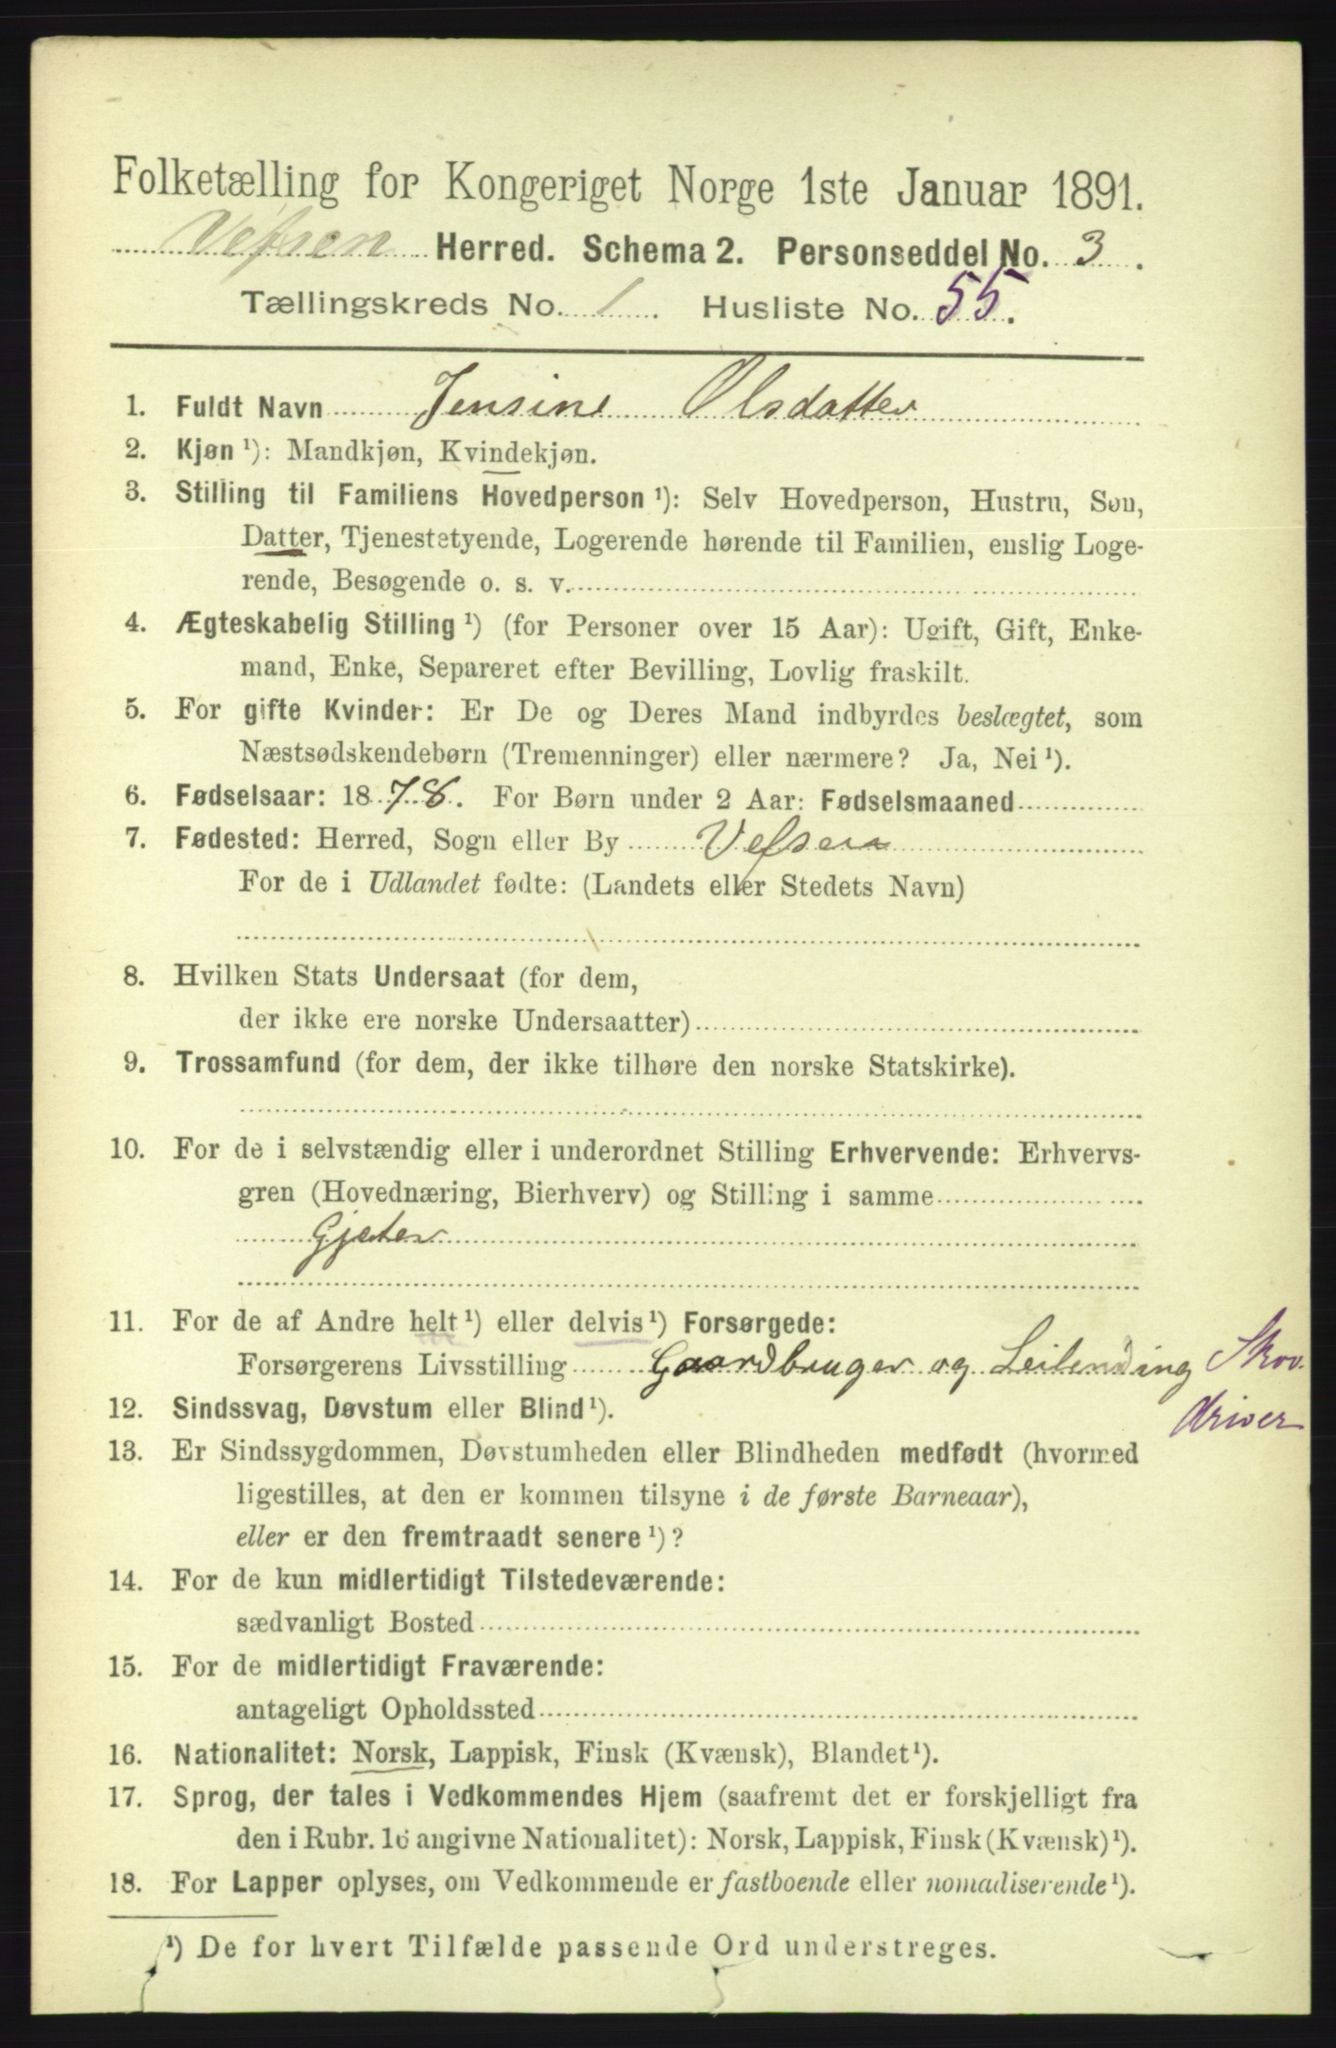 Folketælling for Kongeriget Norge 1ste Januar 1891.
Vefsen Herred. Schema 2. Personseddel No. 3.
Tællingskreds No. 1. Husliste No. 55.
1. Fuldt Navn Jensine Olsdatter
2. Kjøn ¹): Mandkjøn, Kvindekjøn.
3. Stilling til Familiens Hovedperson ¹): Selv Hovedperson, Hustru, Søn,
Datter, Tjenestetyende, Logerende hørende til Familien, enslig Loge-
rende, Besøgende o. s. v.
4. Ægteskabelig Stilling ¹) (for Personer over 15 Aar): Ugift, Gift, Enke-
mand, Enke, Separeret efter Bevilling, Lovlig fraskilt.
5. For gifte Kvinder: Er De og Deres Mand indbyrdes beslægtet, som
Næstsødskendebørn (Tremenninger) eller nærmere? Ja, Nei ¹).
6. Fødselsaar: 1878. For Børn under 2 Aar: Fødselsmaaned
7. Fødested: Herred, Sogn eller By Vefsen
For de i Udlandet fødte: (Landets eller Stedets Navn)
8. Hvilken Stats Undersaat (for dem,
der ikke ere norske Undersaatter)
9. Trossamfund (for dem, der ikke tilhøre den norske Statskirke).
10. For de i selvstændig eller i underordnet Stilling Erhvervende: Erhvervs-
gren (Hovednæring, Bierhverv) og Stilling i samme
Gjeter
11. For de af Andre helt ¹) eller delvis ¹) Forsørgede:
Forsørgerens Livsstilling Gaardbruger og Leilending Skov
driver
12. Sindssvag, Døvstum eller Blind ¹).
13. Er Sindssygdommen, Døvstumheden eller Blindheden medfødt (hvormed
ligestilles, at den er kommen tilsyne i de første Barneaar),
eller er den fremtraadt senere ¹)?
14. For de kun midlertidigt Tilstedeværende:
sædvanligt Bosted
15. For de midlertidigt Fraværende:
antageligt Opholdssted
16. Nationalitet: Norsk, Lappisk, Finsk (Kvænsk), Blandet ¹).
17. Sprog, der tales i Vedkommendes Hjem (saafremt det er forskjelligt fra
den i Rubr. 16 angivne Nationalitet): Norsk, Lappisk, Finsk (Kvænsk) ¹).
18. For Lapper oplyses, om Vedkommende er fastboende eller nomadiserende ¹).
¹) De for hvert Tilfælde passende Ord understreges.